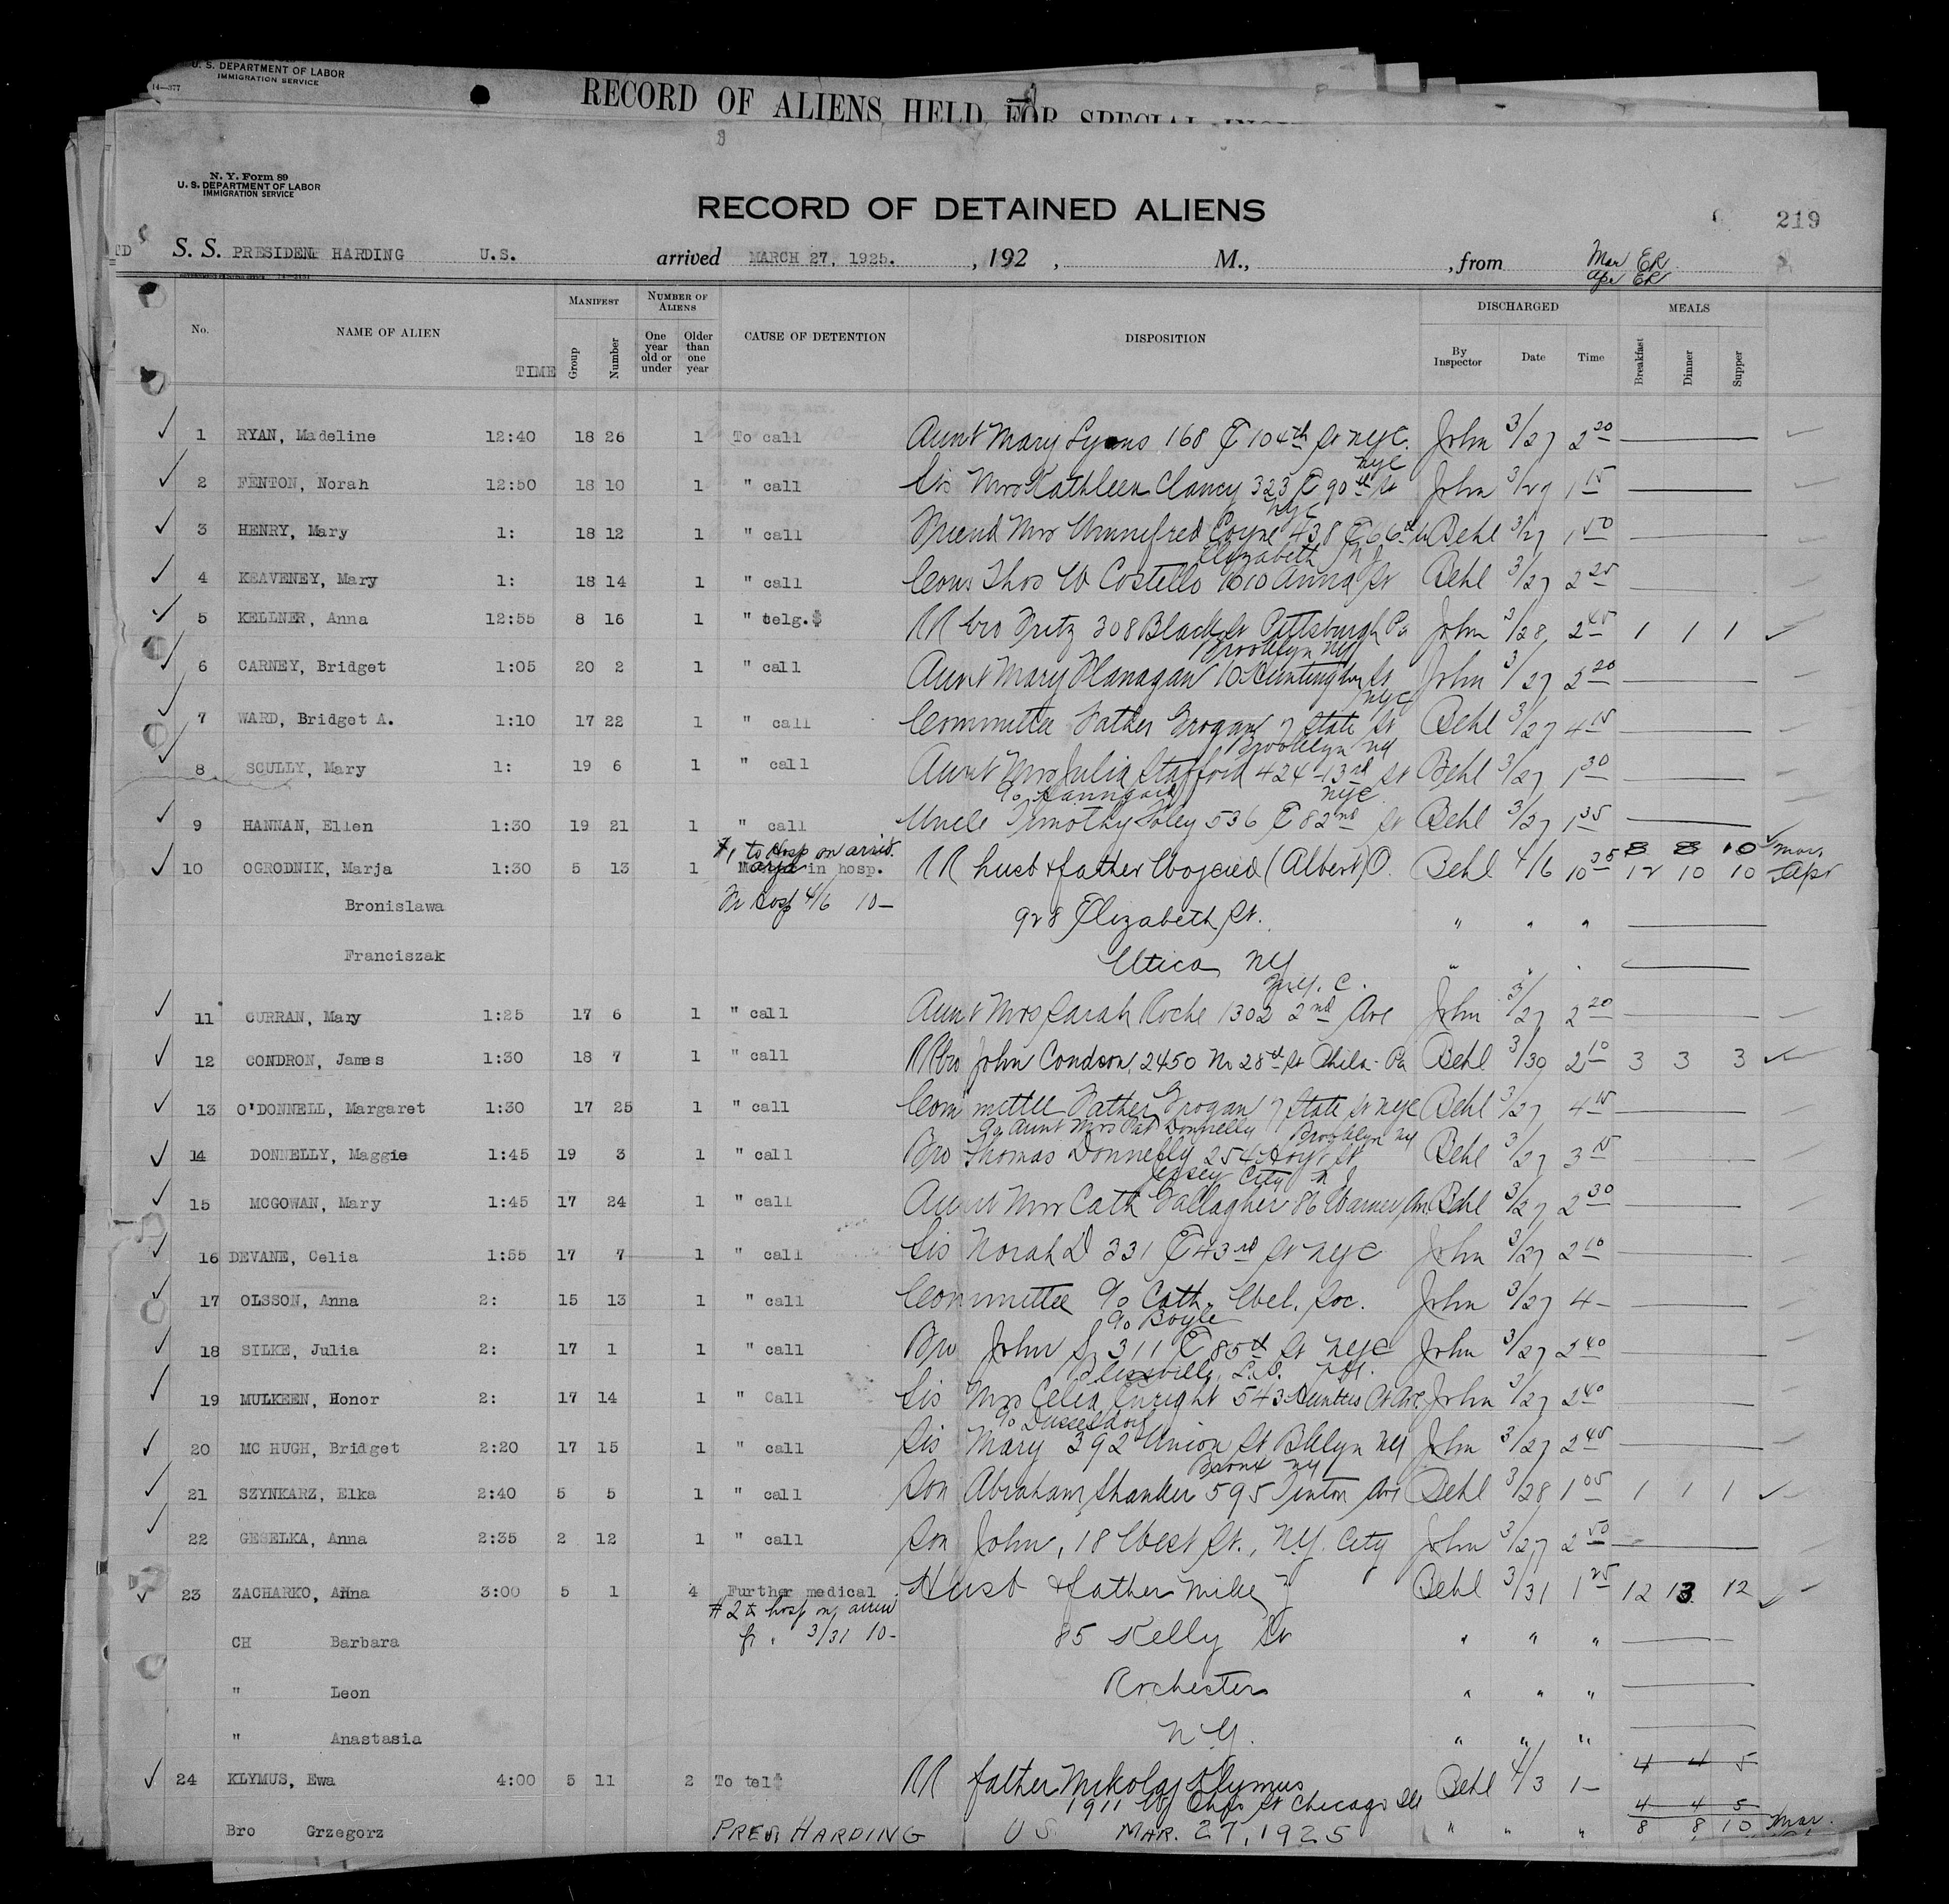 U. S. DEPARTMENT OF LABOR
IMMIGRATION SERVICE
14—377
RECORD OF ALIENS HELD FOR SPECIAL
N. Y. Form 89
U. S. DEPARTMENT OF LABOR
IMMIGRATION SERVICE
RECORD OF DETAINED ALIENS
219
S. S. PRESIDENT HARDING U.S. arrived MARCH 27, 1925. , 192 , M., , from Mar ER
Apr ER
No. NAME OF ALIEN TIME MANIFEST Group Number NUMBER OF ALIENS One year old or under Older than one year CAUSE OF DETENTION DISPOSITION DISCHARGED By Inspector Date Time MEALS Breakfast Dinner Supper
1 RYAN, Madeline 12:40 18 26 1 To call Aunt Mary Lyons 168 E 104th St NYC. John 3/27 2 20
NYC
2 FENTON, Norah 12:50 18 10 1 " call Sis Mrs Kathleen Clancy 323 E 90th St John 3/27 1 15
NYC
3 HENRY, Mary 1: 18 12 1 " call Friend Mrs Winnifred Coyne 438 E 66th St Behl 3/27 1 50
Elizabeth NJ
4 KEAVENEY, Mary 1: 18 14 1 " call Cous Thos W Costello 1010 Anna St Behl 3/27 2 25
5 KELLNER, Anna 12:55 8 16 1 " telg. RR bro Fritz 308 Black St Pittsburgh Pa John 3/28 2 45 1 1 1
Brooklyn NY
6 CARNEY, Bridget 1:05 20 2 1 " call Aunt Mary Flanagan 10 Huntington St John 3/27 2 20
NYC
7 WARD, Bridget A. 1:10 17 22 1 " call Committee Father Grogan 7 State St Behl 3/27 4 15
Brooklyn NY
8 SCULLY, Mary 1: 19 6 1 " call Aunt Mrs Julia Stafford 424-13rd St Behl 3/27 1 30
NYC
9 HANNAN, Ellen 1:30 19 21 1 " call Uncle Timothy Foley 536 E 82nd St Behl 3/27 1 35
#1 to Hosp on arriv. 8 8 10 Mar.
10 OGRODNIK, Marja 1:30 5 13 1 Marja in hosp. RR husb & father Wojcied (Albert) O. Behl 4/6 10 35 12 10 10 Apr
Bronislawa Fr Hosp 4/6 10— 928 Elizabeth St. " " "
Franciszak Utica NY " " "
N.Y. C.
11 CURRAN, Mary 1:25 17 6 1 " call Aunt Mrs Sarah Roche 1302 2nd Ave John 3/27 2 20
12 CONDRON, James 1:30 18 7 1 " call RR bro John Condron, 2450 No 28th St Phila- Pa Behl 3/30 2 10 3 3 3
13 O'DONNELL, Margaret 1:30 17 25 1 " call Committee Father Grogan 7 State St NYC Behl 3/27 4 15
c/o Aunt Mrs Pat Donnelly Brooklyn NY
14 DONNELLY, Maggie 1:45 19 3 1 " call Bro Thomas Donnelly 254 Hoyt St Behl 3/27 3 15
Jersey City NJ
15 MCGOWAN, Mary 1:45 17 24 1 " call Aunt Mrs Cath Gallagher 86 Warner Ave Behl 3/27 2 30
16 DEVANE, Celia 1:55 17 7 1 " call Sis Norah D 331 E 43rd St NYC John 3/27 2 10
17 OLSSON, Anna 2: 15 13 1 " call Committee c/o Cath. Wel. Soc. John 3/27 4—
c/o Boyle
18 SILKE, Julia 2: 17 1 1 " call Bro John S. 311 E 85th St NYC John 3/27 2 40
Blissville, L.I. N.Y.
19 MULKEEN, Honor 2: 17 14 1 " Call Sis Mrs Celia Enright 543 Hunters Pt Ave John 3/27 2 40
c/o Dusseldorf
20 MC HUGH, Bridget 2:20 17 15 1 " call Sis Mary 392 Union St Bklyn NY John 3/27 2 45
Bronx NY
21 SZYNKARZ, Elka 2:40 5 5 1 " call Son Abraham Shanker 595 Tinton Ave Behl 3/28 1 05 1 1 1
22 GESELKA, Anna 2:35 2 12 1 " call Son John, 18 West St., N.Y. City John 3/27 2 50
23 ZACHARKO, Anna 3:00 5 1 4 Further medical Husb & father Mike Z Behl 3/31 1 25 12 13 12
#2 to hosp on arriv
CH Barbara fr " 3/31 10— 85 Kelly St " " "
" Leon Rochester " " "
" Anastasia N.Y. " " "
4 4 5
24 KLYMUS, Ewa 4:00 5 11 2 To tel RR father Mikolaj Klymus Behl 4/3 1—
1911 W Chgo St Chicago Ill 4 4 5
Bro Grzegorz PRES. HARDING US MAR. 27, 1925 " " " 8 8 10 Mar.